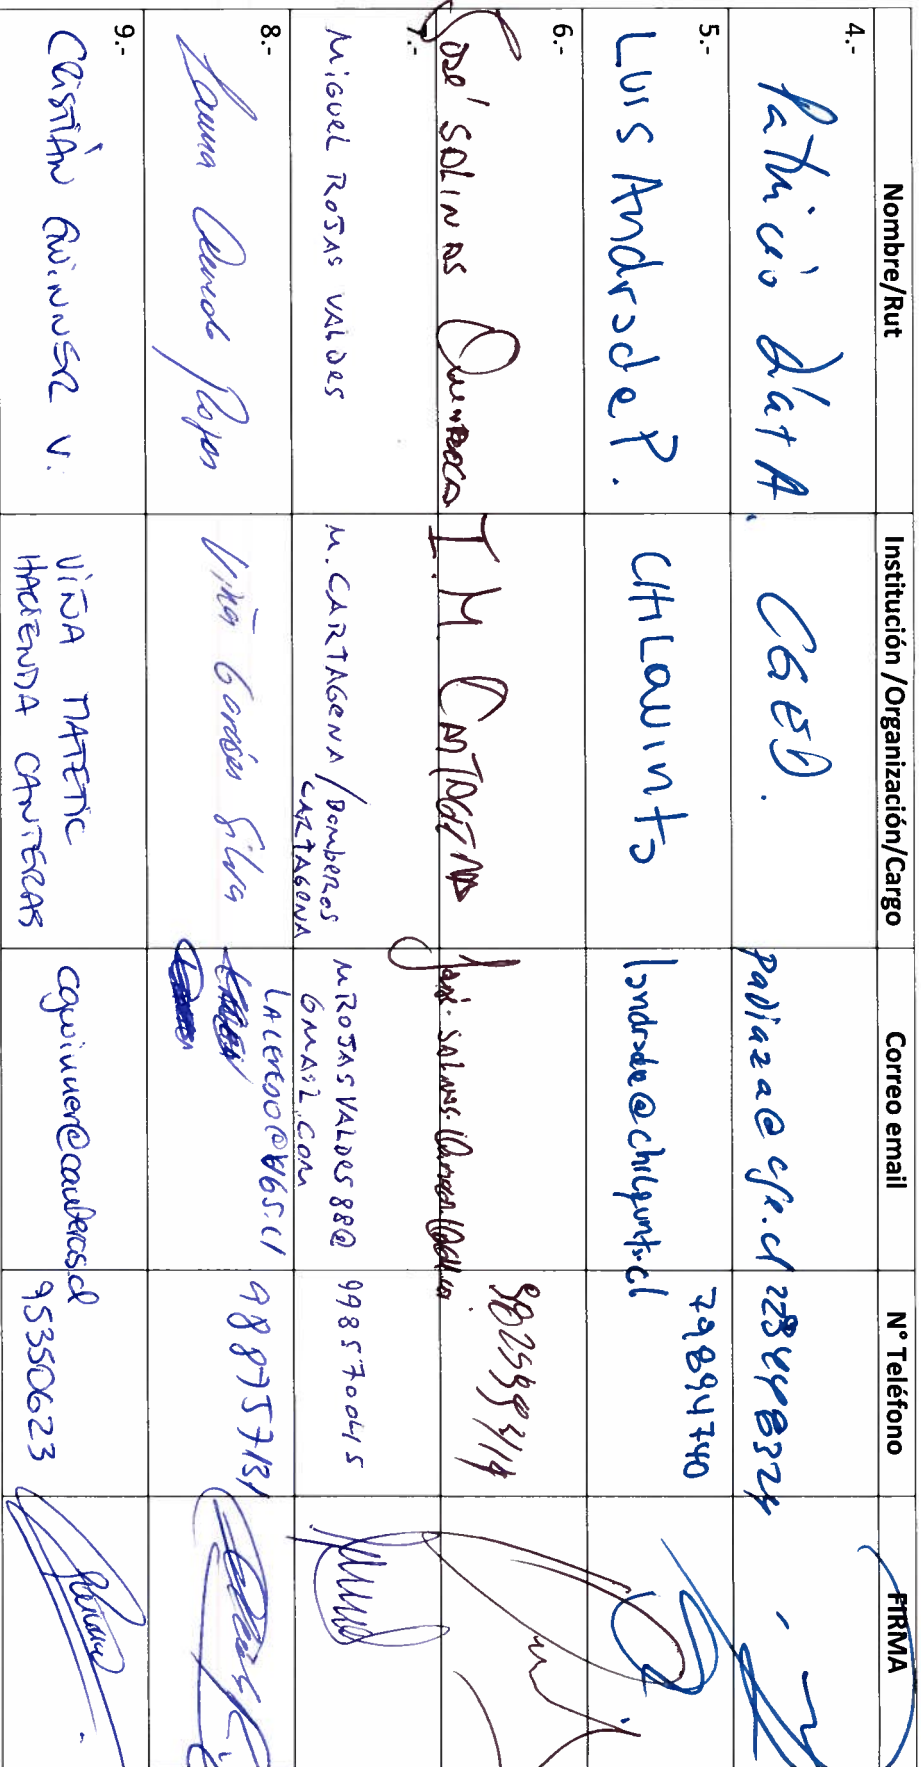 Nombre/Rut Institución /Organización/Cargo Correo email N° Teléfono FIRMA
4.- Patricio Díaz A. CGED. padiaza@cge.cl
5.- Luis Andrade P. CHILquinta landrade@chilquinta.cl 79894740
6.- José SALINAS I. M. CARTAGENA
7.- MIGUEL ROJAS VALDES M. CARTAGENA / Bomberos CARTAGENA MROJASVALDES88@GMAIL.COM 998570045
8.- Laura Acevedo Rojas Viña Garcés Silva LACEVEDO@VGS.Cl 988757131
9.- CRISTIÁN GWINNER V. VIÑA MATETIC
HACIENDA CANTERAS cgwinner@canteras.cl 95350623